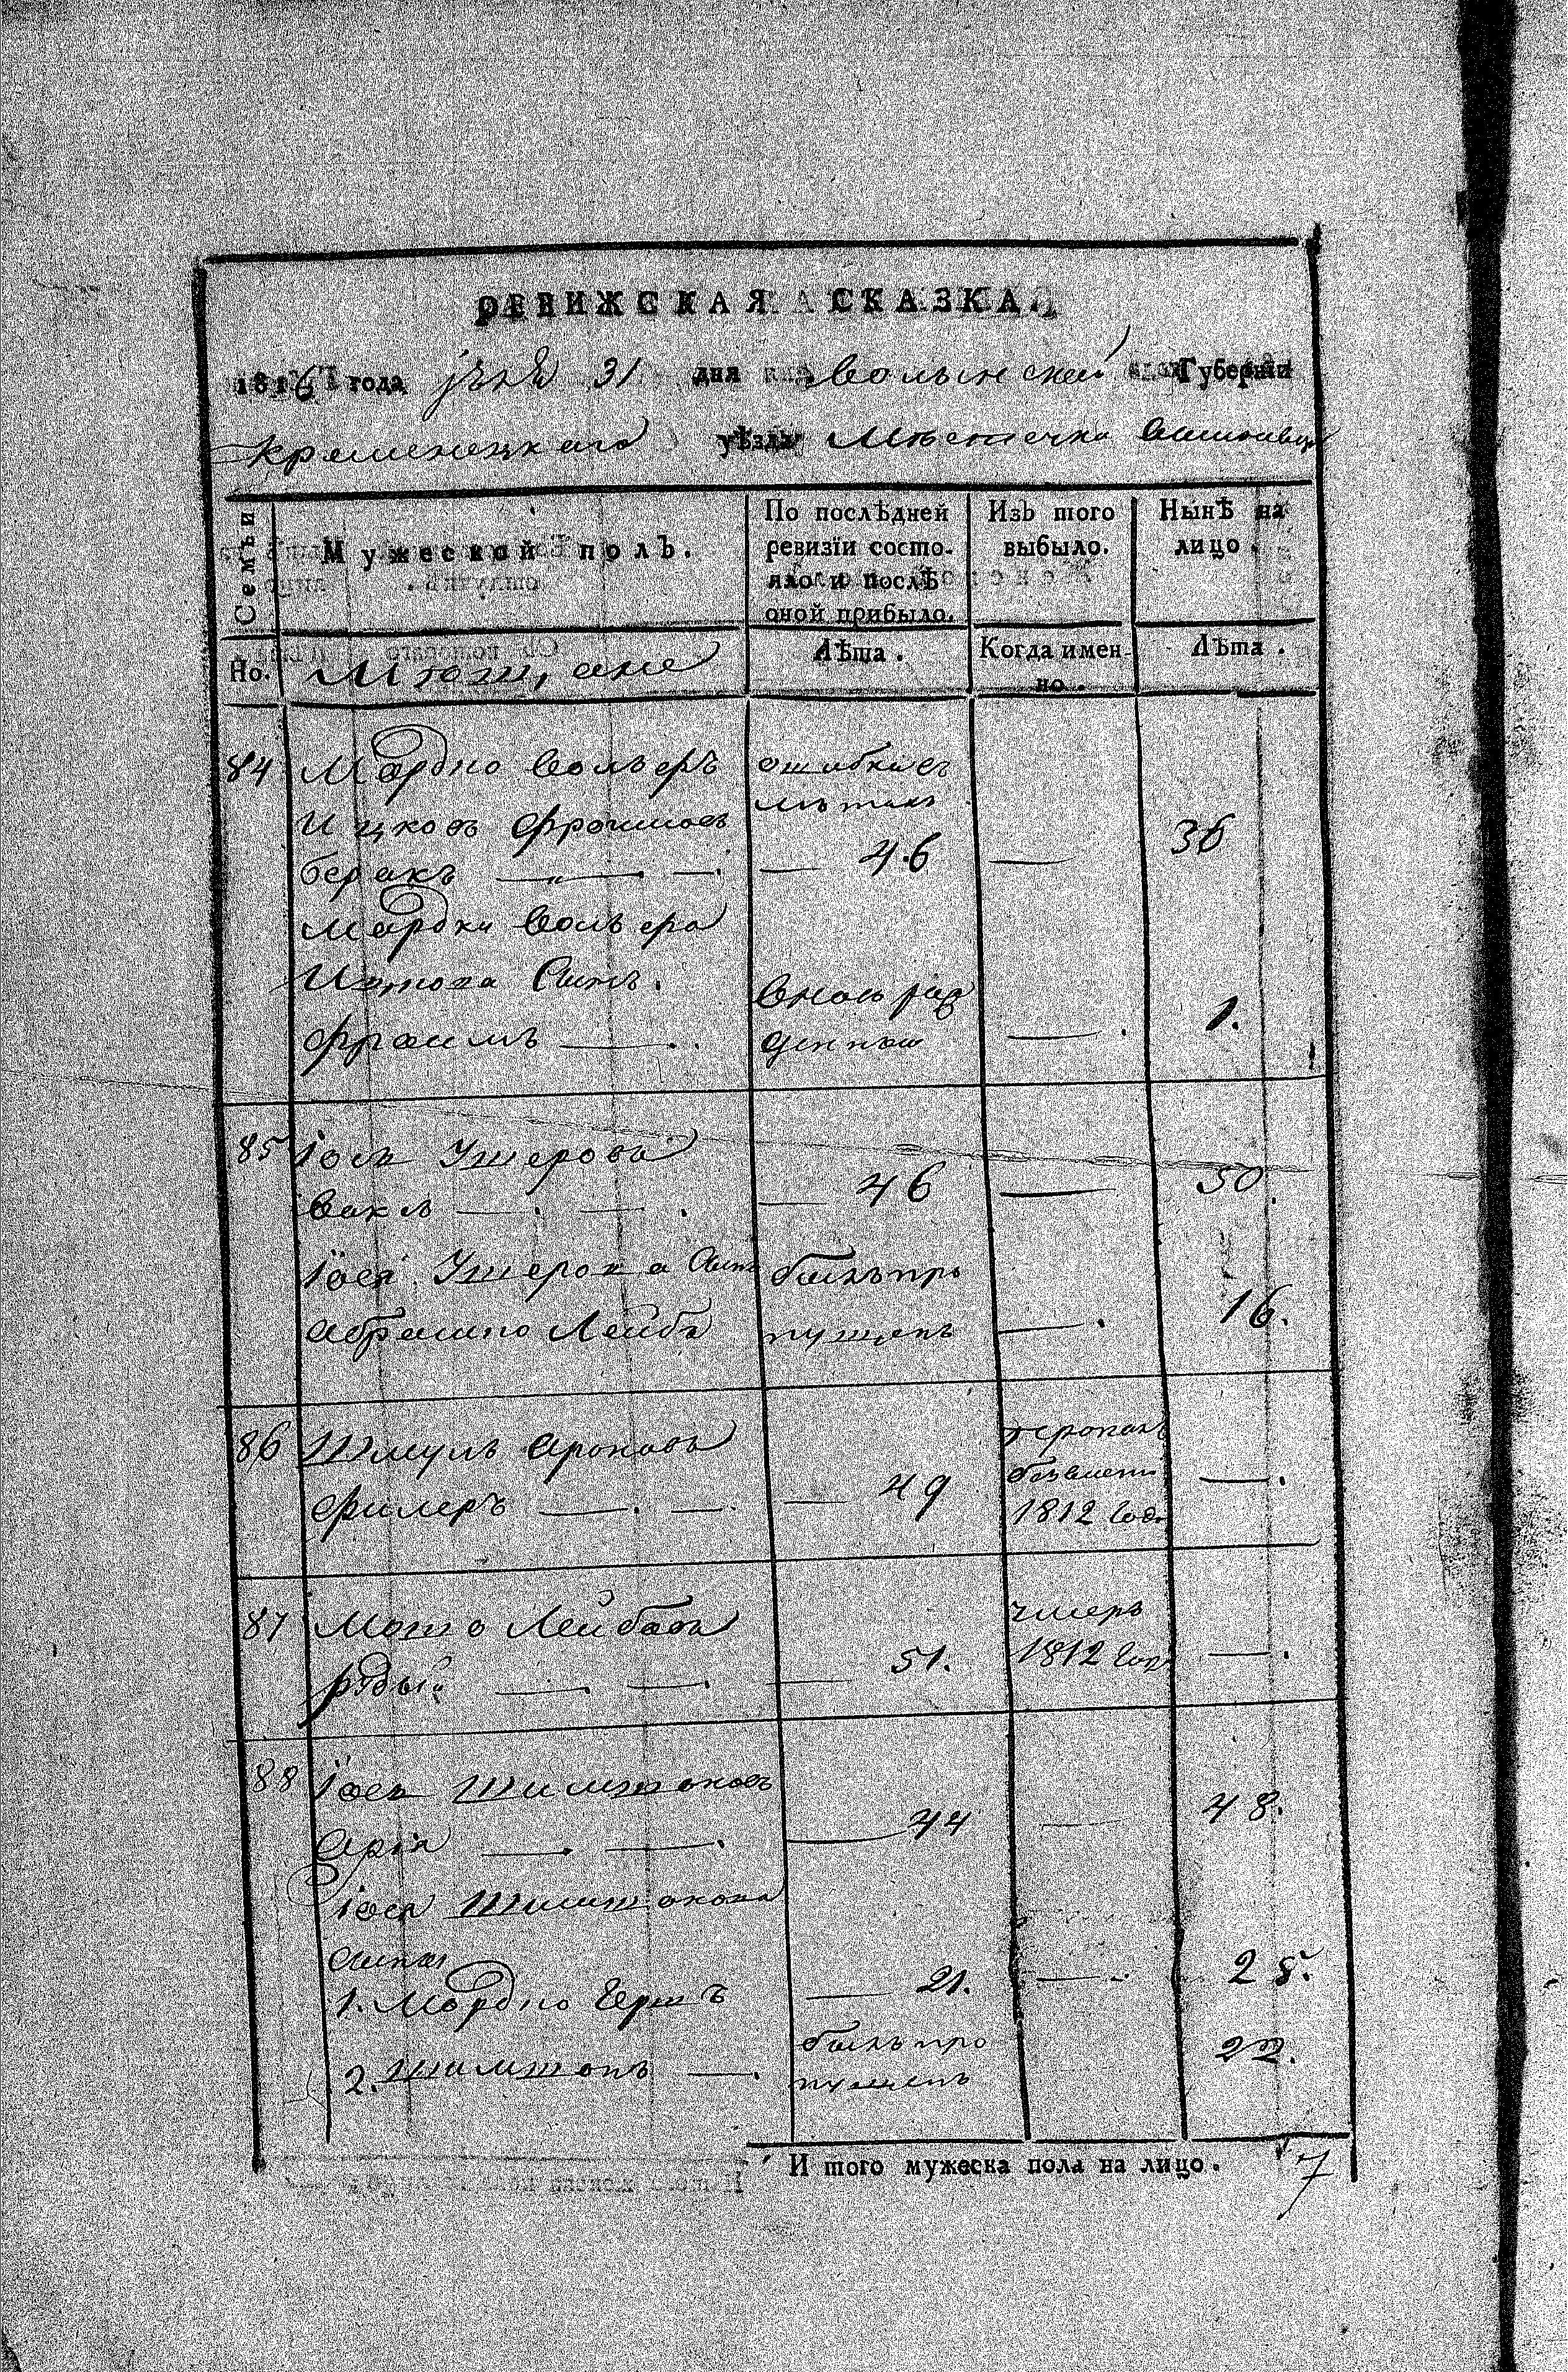 РЕВИЖСКАЯ СКАЗКА.
1816 года 31 дня Волынской Губерніи
Кременецкаго уѣзда Мѣстечка
Семьи
Мужеской полъ.
По послѣдней ревизіи состояло и послѣ оной прибыло.
Изъ того выбыло.
Нынѣ на лицо.
Но.
Мѣщане
Лѣта.
Когда именно.
Лѣта.
84 Мордко Вольеръ ошибкиевъ
Ицковъ Фроимовъ
Беракъ — — 46 — 36
Мордки Вольера
Ицкова Сынъ. Вновь рож
Фроимъ — денный — 1.
85 Іось Ушеровъ
— — 46 — 50.
Іося Ушерова Сынъ былъ про
Абрамко Лейба пущенъ — 16.
86 Шмуль Ароновъ
Филеръ — — 49 безвести 1812 Года —
87 Мошко Лейбовъ умеръ
Рудый — — 51. 1812 Года —
88 Іось Шимшоновъ
— — 44 — 48.
Іося Шимшонова
Сынья
1. Мордко Гершъ — 21. — 25.
2. Шимшонъ — былъ про 22.
пущенъ
И того мужеска пола на лицо. 7